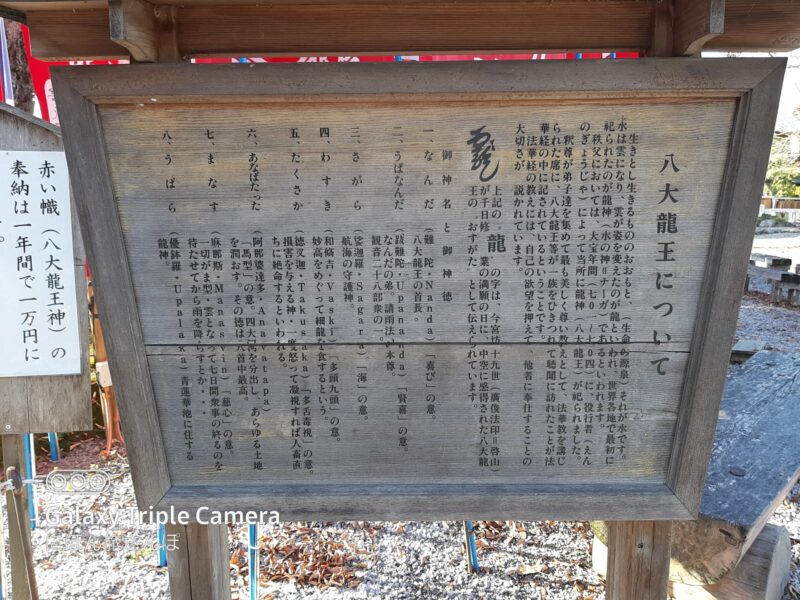 八大龍王について
生きとし生けるもののおおもと、（生命の源泉）それが水です。
水は雲になり、雲が姿を変えたのが龍といわれ 世界各地で最初に
祀られたのが龍神（水の神＝ナーガ）であるといわれます。
秩父においては、大宝年間（七０１／７０４）に、役行者（えん
のぎょうじゃ）によって当所に龍神（八大龍王）が祀られました。
釈尊が弟子達を集めて最も美しく尊い教えとして、法華教を講じ
られた席に、八大龍王等が一族をひきつれて聴聞に訪れたことが法
華経の中に記されているということです。
法華経の教えには、自己の欲望を押えて、他者に奉仕することの
大切さが、説かれています。
上記の 龍 の字は、今宮坊十九世（廣俊法印＝啓山）
が千日修業の満願の日に、中空に感得された八大龍
王の、おすがた、として伝えられています。
御神名と御神徳
一、なんだ（難陀・Nanda）「喜び」の意。
八大龍王の首長。
二、うばなんだ（跋難陀・Upananda）「賢喜」の意。
なんだの弟、請雨法の本尊。
観音二十八部衆の一
三、さがら（娑迦羅・Sagara）「海」の意。
航海の守護神。
四、わすき（和脩吉・Vaski）「多頭九頭」の意。
妙高をめぐって細龍を食するという。
五、たくさか（徳叉迦・Takusaka）「多舌毒視」の意。
損害を与える神・一度怒って凝視すれば人畜直
ちに絶命するといわれる。
六、あなばたった（阿那婆達多・Anavatapa）
「馬型」の意。四大河を分出し、あらゆる土地
を潤おす。その徳は八首中最高。
七、まなす（麻那斯・Manasvin）「慈心」の意。
一切がま型・雲となって七日間衆事の終るのを
待たせてから雨を降らすとか・・・
八、うばら（優鉢羅・Upalaka）青蓮華池に住する
龍神
赤い幟（八大龍王神）の
奉納は一年間で一万円に
Galaxy Triple Camera